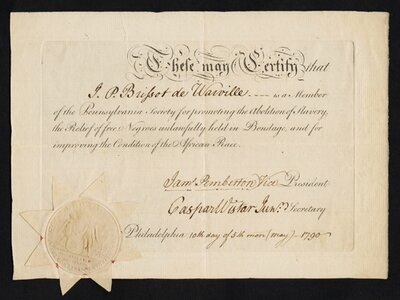 These may Certify that
J. P. Brissot de Warville --- is a Member
of the Pennsylvania Society for promoting the Abolition of Slavery,
the Relief of free Negroes unlawfully held in Bondage, and for
improving the Condition of the African Race.
Jams. Pemberton Vice President
Caspar Wistar Junr. Secretary
Philadelphia 10th day of 5th mon (May) - 1790